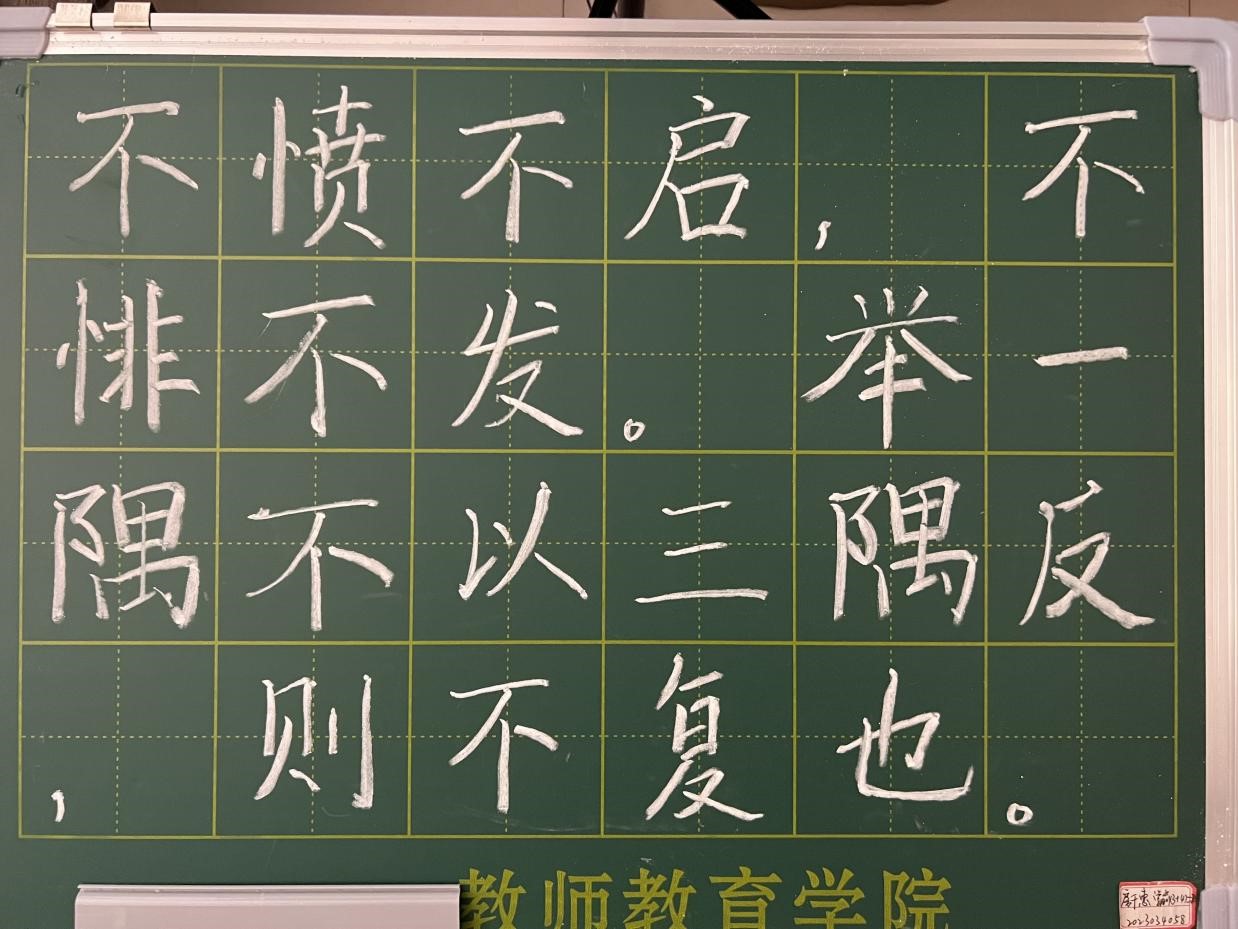 不愤不启，不
悱不发。举一
隅不以三隅反
，则不复也。
教师教育学院
2023034058